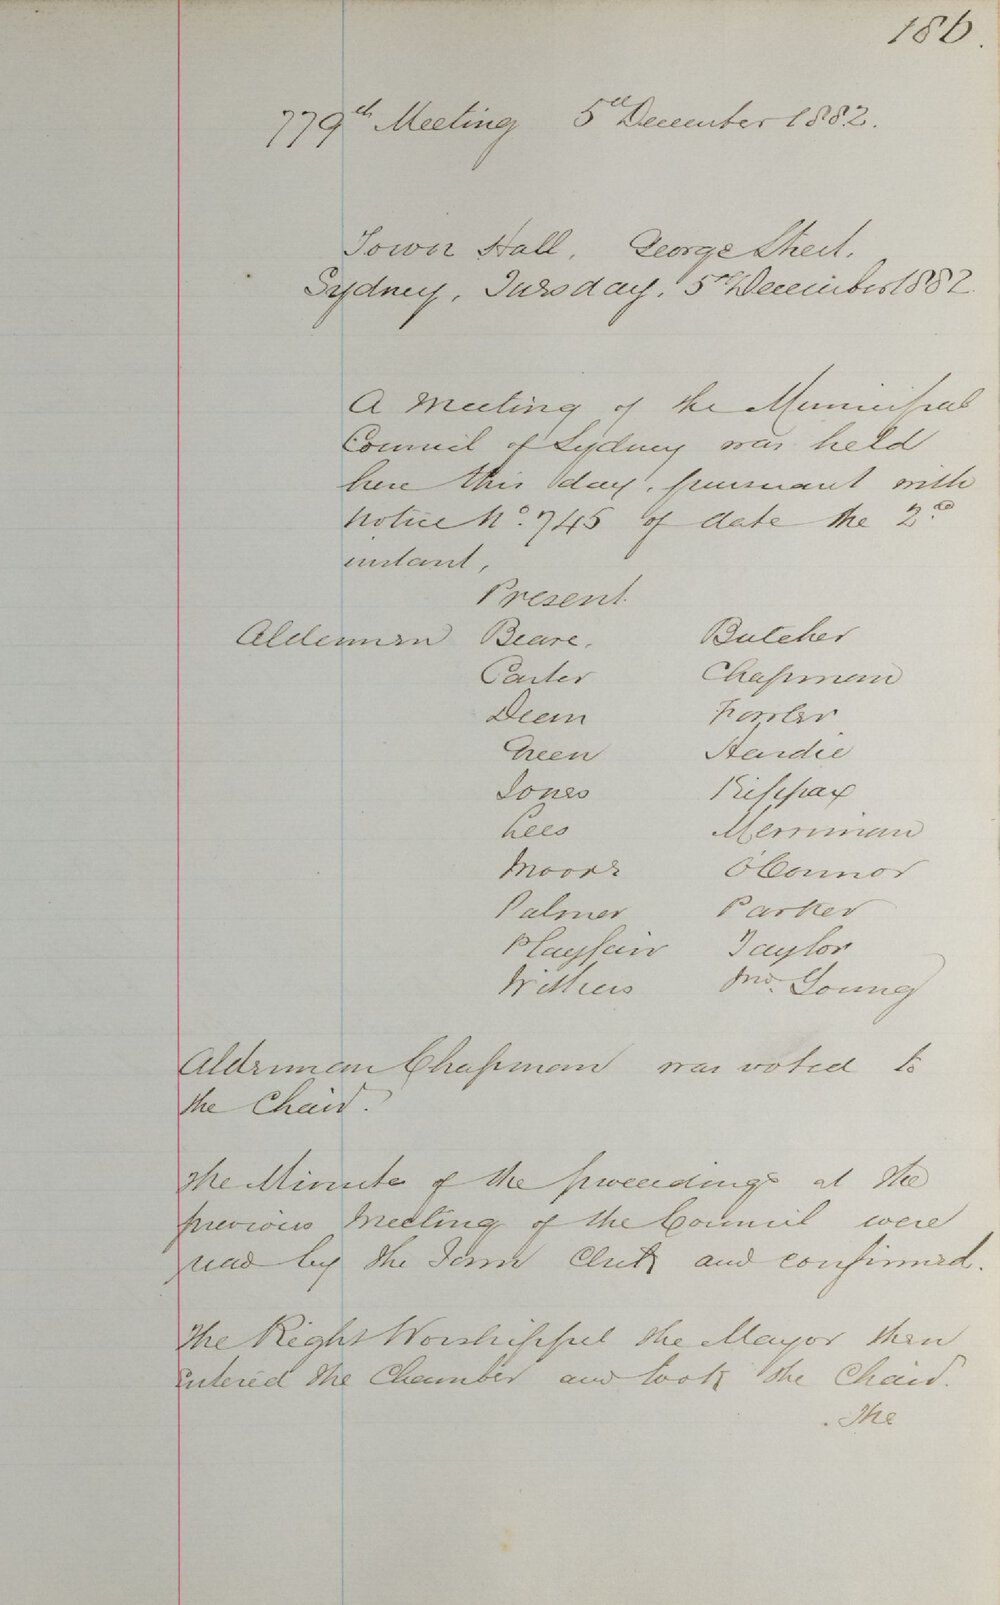 186.
779th Meeting 5th December 1882.
Town Hall, George Street.
Sydney, Tuesday, 5th December 1882
A Meeting of the Municipal
Council of Sydney was held
here this day, pursuant with
Notice No. 745 of date the 2nd
instant,
Present.
Aldermen Beare. Butcher
Carter Chapman
Dean Fowler
Green Hardie
Jones Kippax
Lees Merriman
Moore O'Connor
Palmer Parker
Playfair Taylor
Withers Young
Alderman Chapman was voted to
the Chair.
The Minute of the proceedings at the
previous Meeting of the Council were
read by the Town Clerk and confirmed.
The Right Worshipful the Mayor then
entered the Chamber and took the Chair.
The